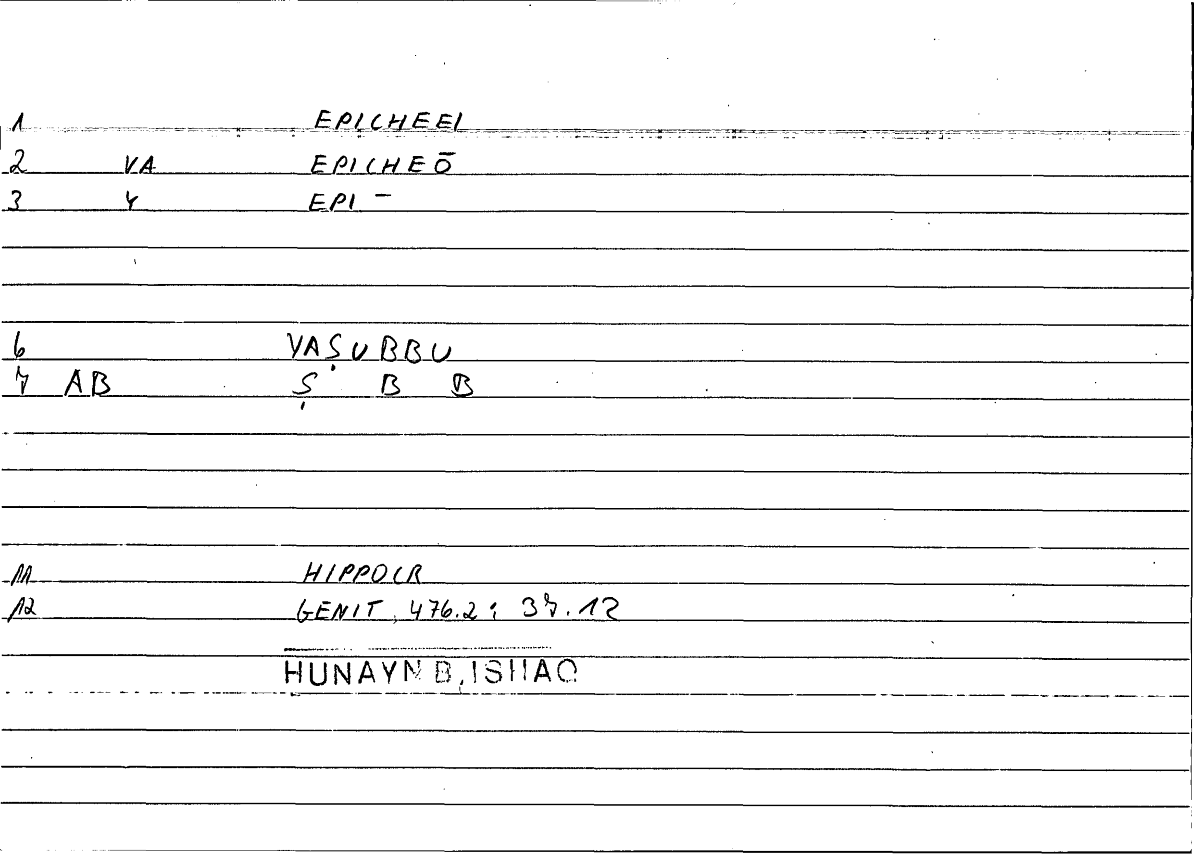 1 EPICHEEI
2 VA EPICHEŌ
3 Y EPI –
6 YAṢUBBU
7 AB Ṣ B B
11 HIPPOCR
12 GENIT, 476.2; 37.12
HUNAYN B. ISHAQ